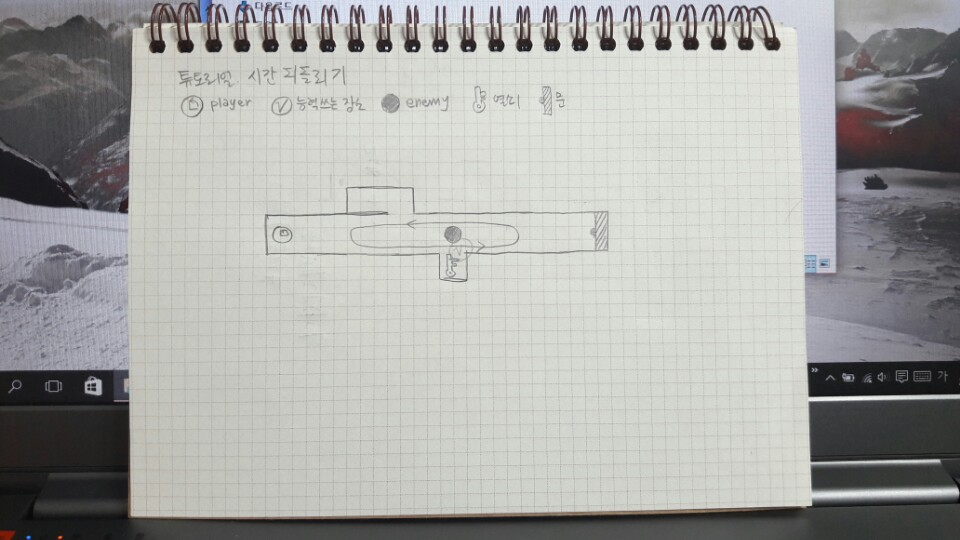 다운로드
튜토리얼 시간 되돌리기
player 능력쓰는 장소 enemy 열쇠 문
가